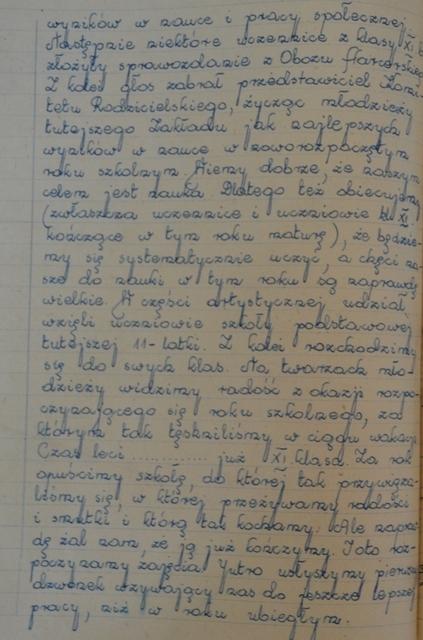 wyników w nauce i pracy społecznej.
Następnie niektóre uczennice z klasy XI
złożyły sprawozdanie z Obozu Harcerskiego
Z kolei głos zabrał przedstawiciel Komi-
tetu Rodzicielskiego, życząc młodzieży
tutejszego Zakładu jak najlepszych
wyników w nauce w noworozpoczętym
roku szkolnym. Wiemy dobrze, że naszym
celem jest nauka. Dlatego też obiecujemy
(zwłaszcza uczennice i uczniowie kl. XI
kończące w tym roku maturę), że będzie-
my się systematycznie uczyć, a chęci na-
sze do nauki w tym roku są naprawdę
wielkie. W części artystycznej udział
wzięli uczniowie szkoły podstawowej
tutejszej 11-latki. Z kolei rozchodzimy
się do swych klas. Na twarzach mło-
dzieży widzimy radość z okazji rozpo-
czynającego się roku szkolnego, za
którym tak tęskniliśmy w ciągu wakacji
Czas leci ............ już XI klasa. Za rok
opuścimy szkołę, do której tak przywiąza-
liśmy się, w której przeżywamy radości
i smutki i którą tak kochamy. Ale napraw-
dę żal nam, że ją już kończymy. I oto roz-
poczynamy zajęcia. Jutro usłyszymy pierwszy
dzwonek wzywający nas do jeszcze lepszej
pracy, niż w roku ubiegłym.